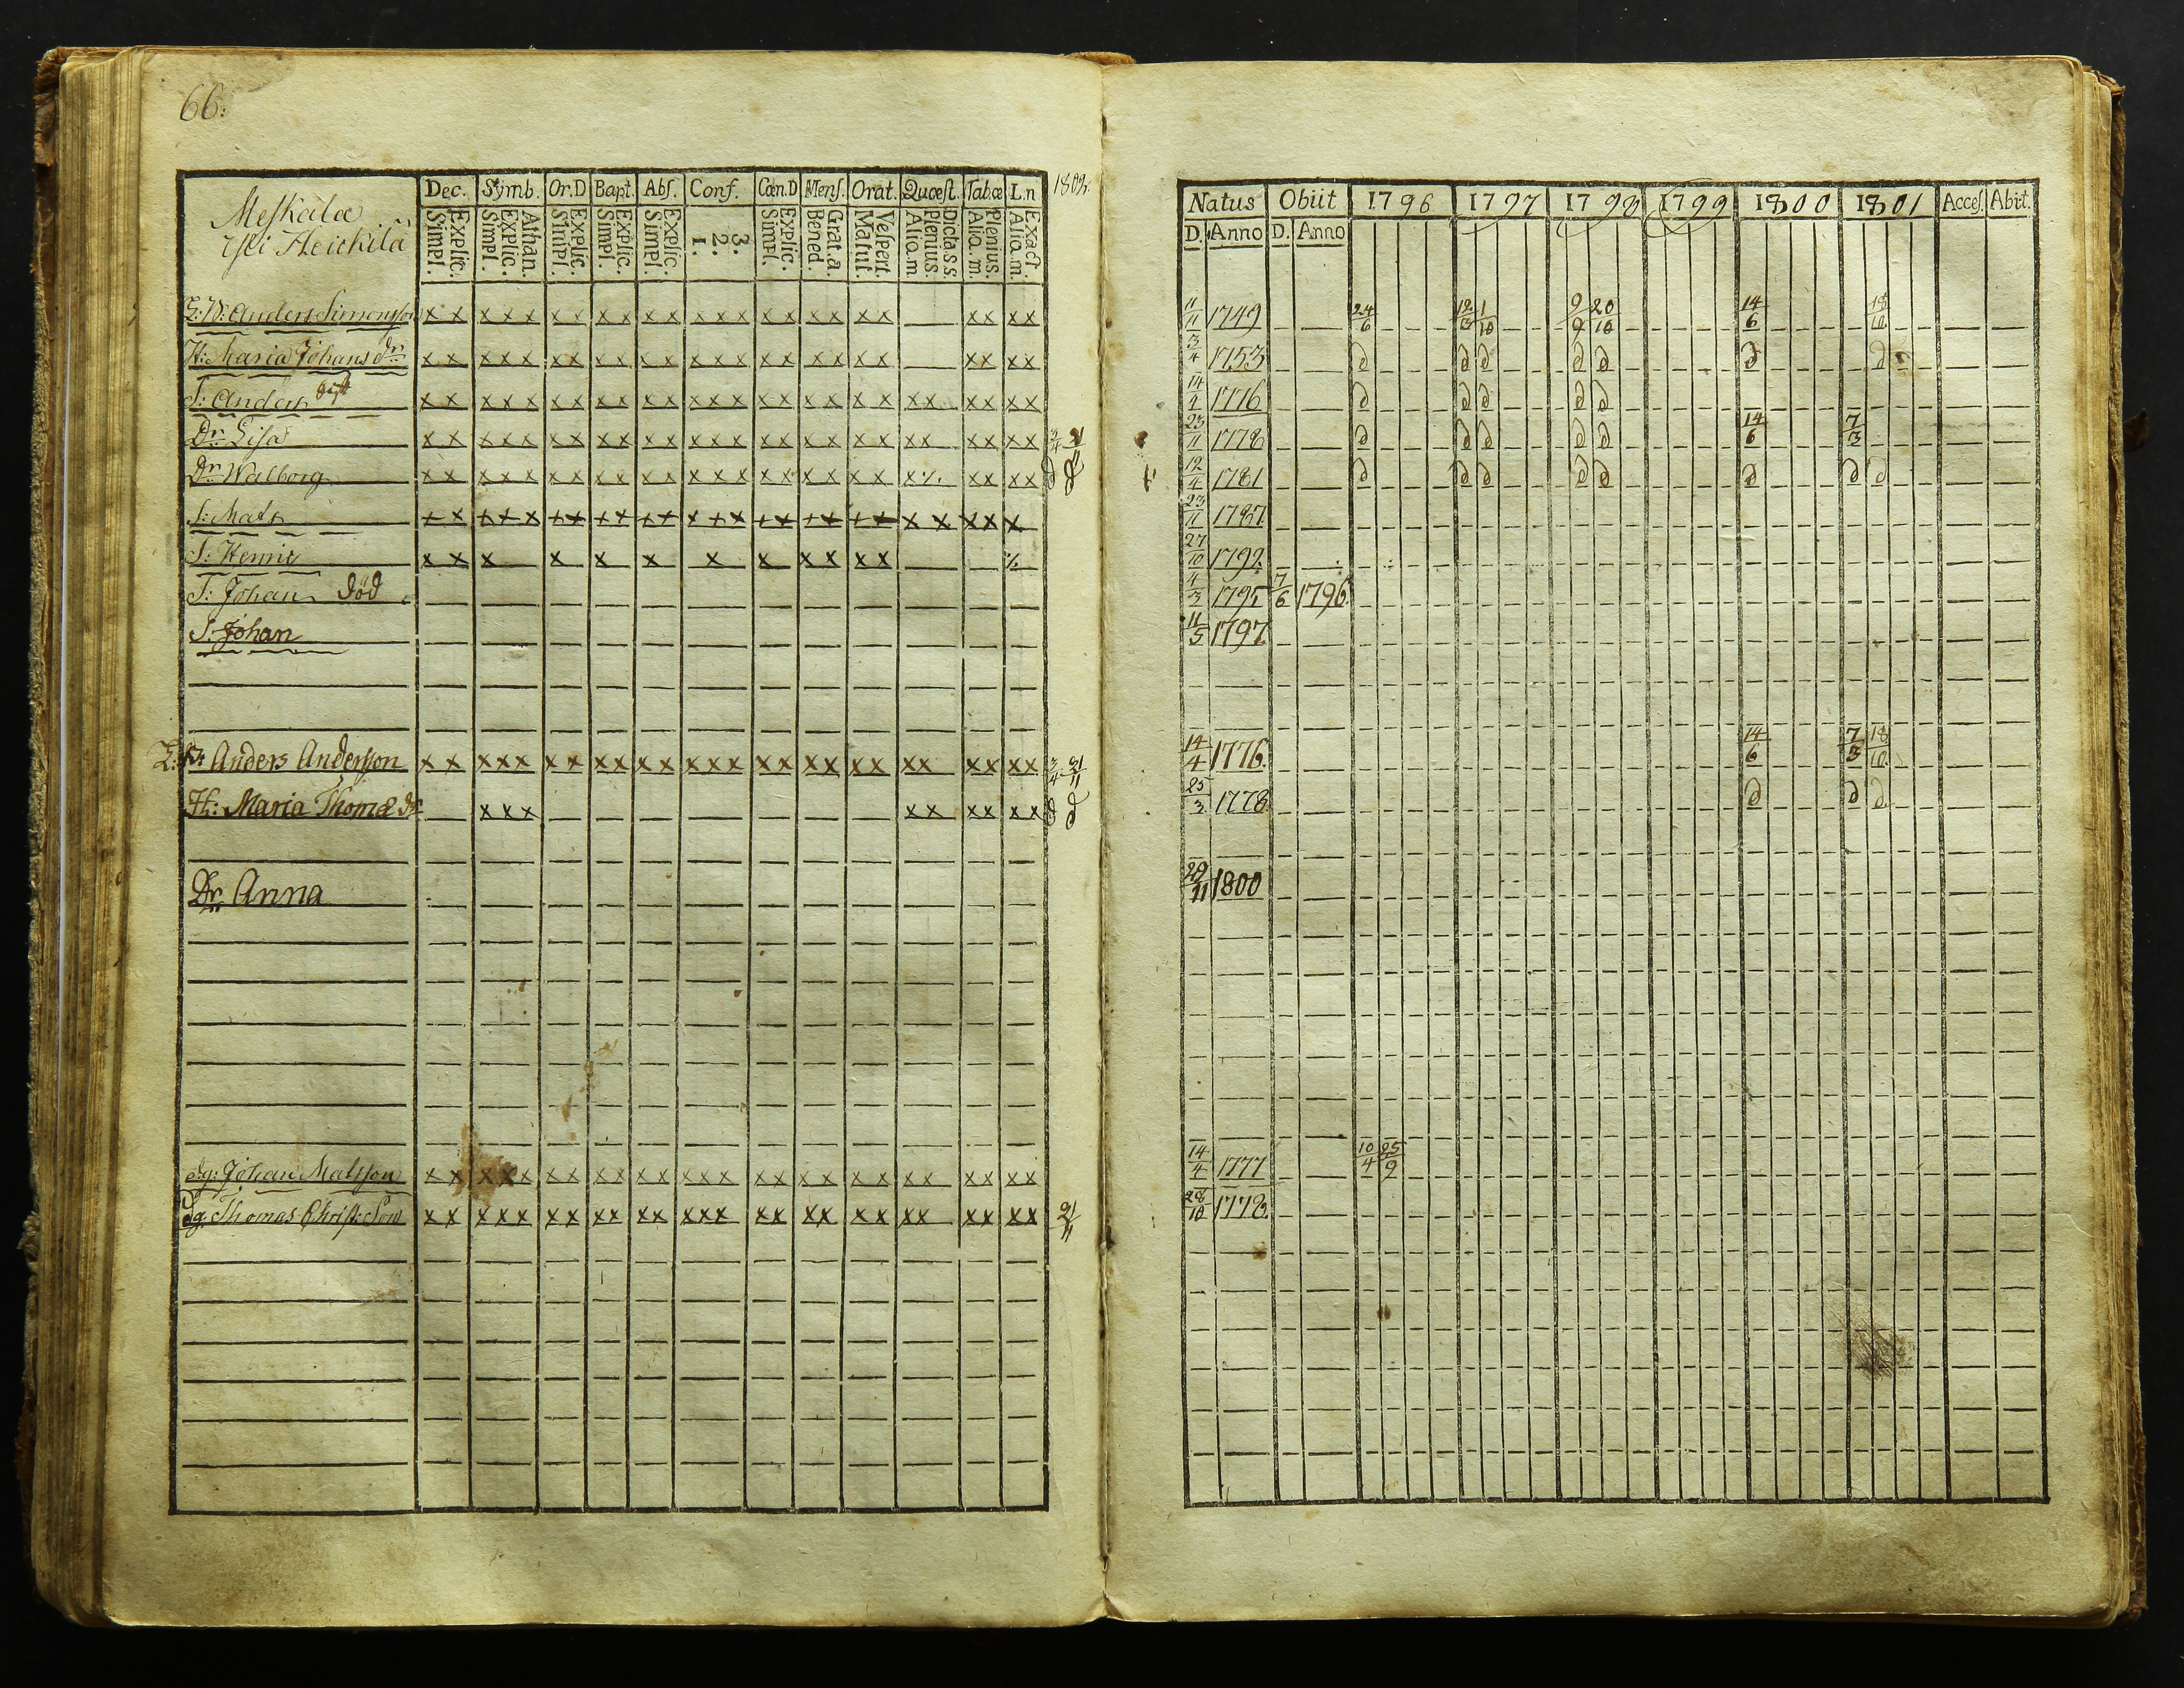 66:
Dec. Symb. Or.D Bapt. Abſ. Conf. Cœn.D Menſ. Orat. Quœſt. Tab.œ L.n 1802.
Meſkala
Yli Heickilä
Explic. Simpl. Athan. Explic. Simpl. Explic. Simpl. Explic. Simpl. Explic. Simpl. 3. 2. 1. Explic. Simpl. Grat.a. Bened. Veſpert. Matut. Dicta s.s. Plenius. Alio.m. Plenius. Alio.m. Exact. Alio.m.
Anders Simonſſon x x x x x x x x x x x x x x x x x x x x x x x x
H: Maria Johans dr x x x x x x x x x x x x x x x x x x x x x x x x
S: Anders x x x x x x x x x x x x x x x x x x x x x x x x x x
Dr: Lisa x x x x x x x x x x x x x x x x x x x x x x x x x x
Dr: Walborg x x x x x x x x x x x x x x x x x x x x x x x x x
S: Mats x x x x x x x x x x x x x x x x x x x x x x x x x
S: Henric x x x x x x x x x x x x
S: Johan död
S: Johan
Anders Anderſſon x x x x x x x x x x x x x x x x x x x x x x x x x x
H: Maria Thomæ dr x x x x x x x x x
Dr: Anna
dg: Johan Matsſon x x x x x x x x x x x x x x x x x x x x x x x x x x
dg: Thomas Chriſt: Son x x x x x x x x x x x x x x x x x x x x x x x x x x
Natus Obiit 1796 1797 1798 1799 1800 1801 Acceſ. Abit.
D. Anno D. Anno
11/11 1749 24/6 12/3 1/10 9/9 20/10 14/6 18/10
3/4 1753 d d d d d d d
14/4 1776 d d d d d
23/11 1778 d d d d d 14/6 7/3
12/4 1781 d d d d d d d d
23/11 1787
27/10 1792
4/3 1795 7/6 1796
11/5 1797
14/4 1776 14/6 7/3 18/10
25/3 1778 d d d
29/11 1800
14/4 1777 10/4 25/9
28/10 1778